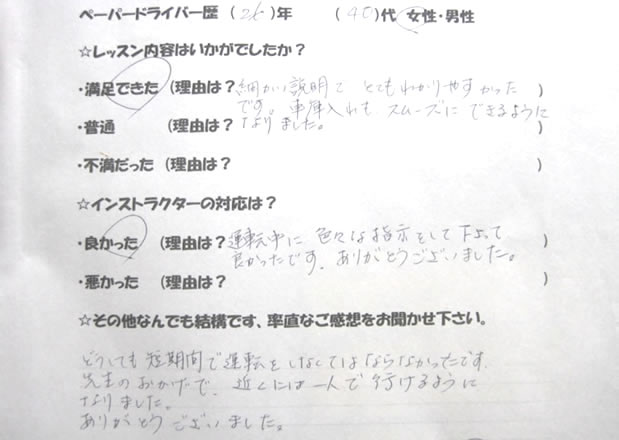 ペーパードライバー歴 (26)年 (40)代 女性・男性
☆レッスン内容はいかがでしたか?
・満足できた (理由は? 細かい説明で とてもわかりやすかった )
です。車庫入れも、スムーズにできるように
・普通 (理由は? なりました。 )
・不満だった (理由は? )
☆インストラクターの対応は?
・良かった (理由は? 運転中に 色々な指示をして下さって )
良かったです。ありがとうございました。
・悪かった (理由は? )
☆その他なんでも結構です、率直なご感想をお聞かせ下さい。
どうしても 短期間で運転をしなくてはならなかったです。
先生のおかげで、近くには一人で行けるように
なりました。
ありがとうございました。